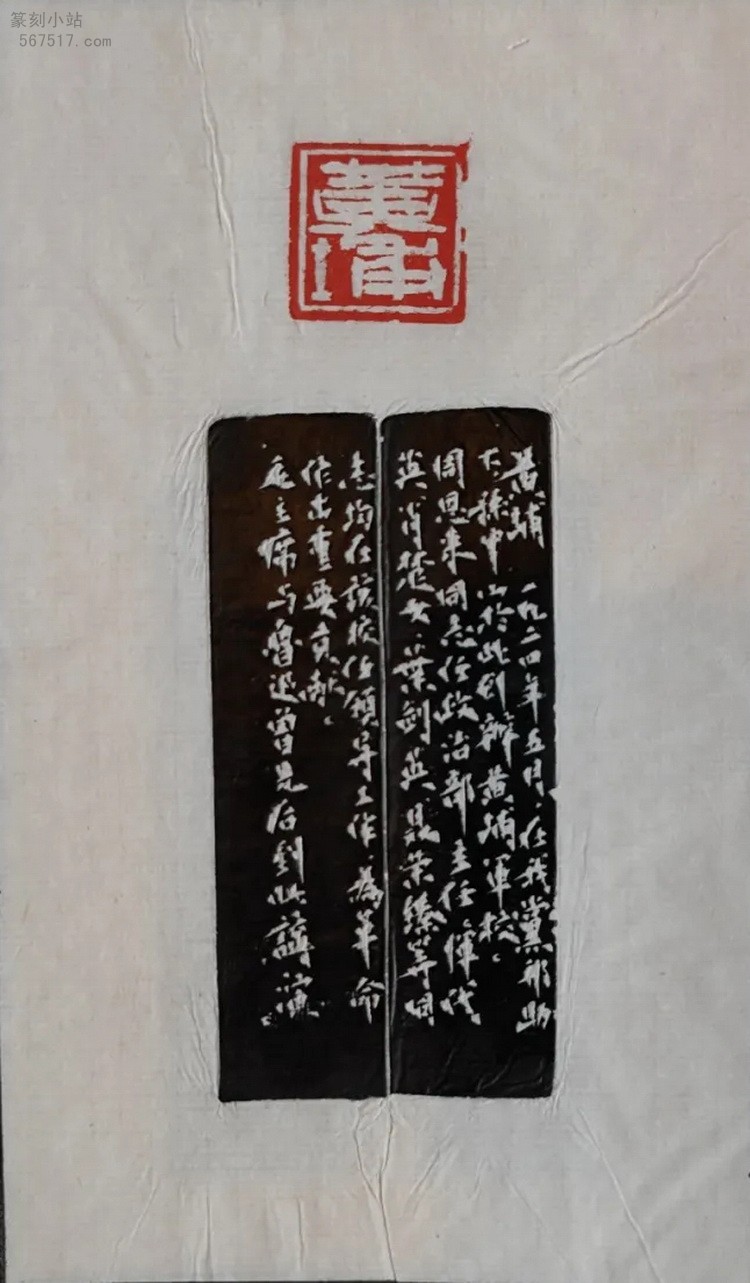 篆刻小站
567517.com
黄埔
黄埔 一九二四年五月，在我黨帮助
下，孫中山於此創辦黄埔軍校。
周恩来同志任政治部主任，惲代
英、肖楚女、葉劍英、聂荣臻等同
志均在該校任領导工作，為革命
作出重要贡献。
毛主席与魯迅曾先后到此講演。